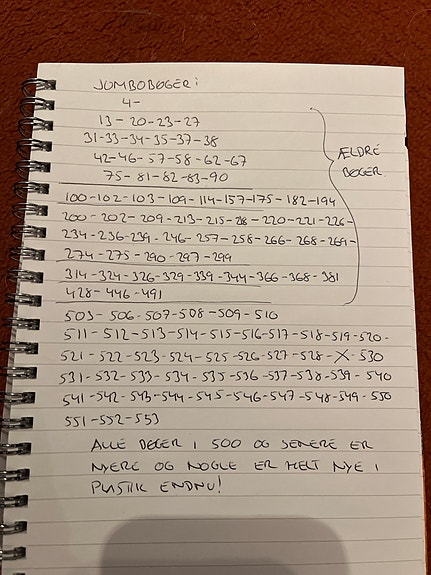 JUMBOBØGER:
4-
13-20-23-27
31-33-34-35-37-38
42-46-57-58-62-67
75-81-82-83-90
ÆLDRE
BØGER
100-102-103-109-114-157-175-182-194
200-202-209-213-215-218-220-221-226-
234-236-239-246-257-258-266-268-269-
274-275-290-297-299
314-324-326-329-339-344-366-368-381
428-446-491
503-506-507-508-509-510
511-512-513-514-515-516-517-518-519-520-
521-522-523-524-525-526-527-528-X-530
531-532-533-534-535-536-537-538-539-540
541-542-543-544-545-546-547-548-549-550
551-552-553
ALLE BØGER I 500 OG SENERE ER
NYERE OG NOGLE ER HELT NYE I
PLASTIK ENDNU!